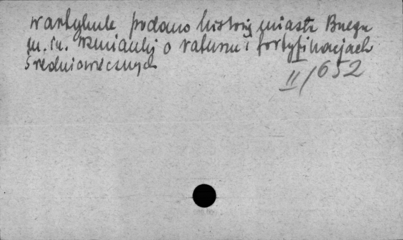 w artykule podano historię miasta Brzegu
m. in. wzmianki o ratuszu i fortyfikacjach
średniowiecznych
II/652